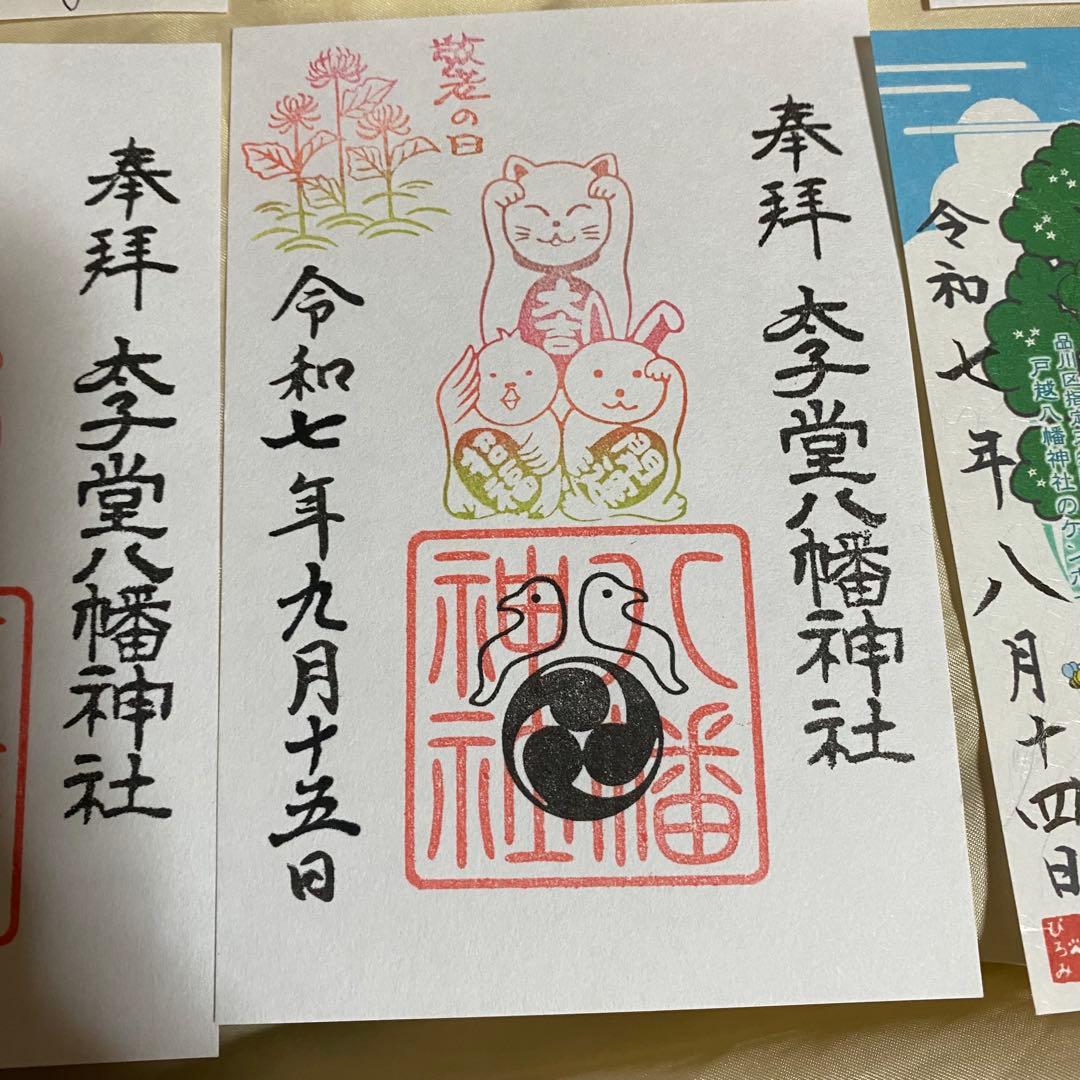 奉拝 太子堂八幡神社
敬老の日
大吉
招福
八幡
神社
令和七年九月十五日
奉拝 太子堂八幡神社
令和七年八月十四日
戸越八幡神社のケンポ
品川区指定天
ひろみ